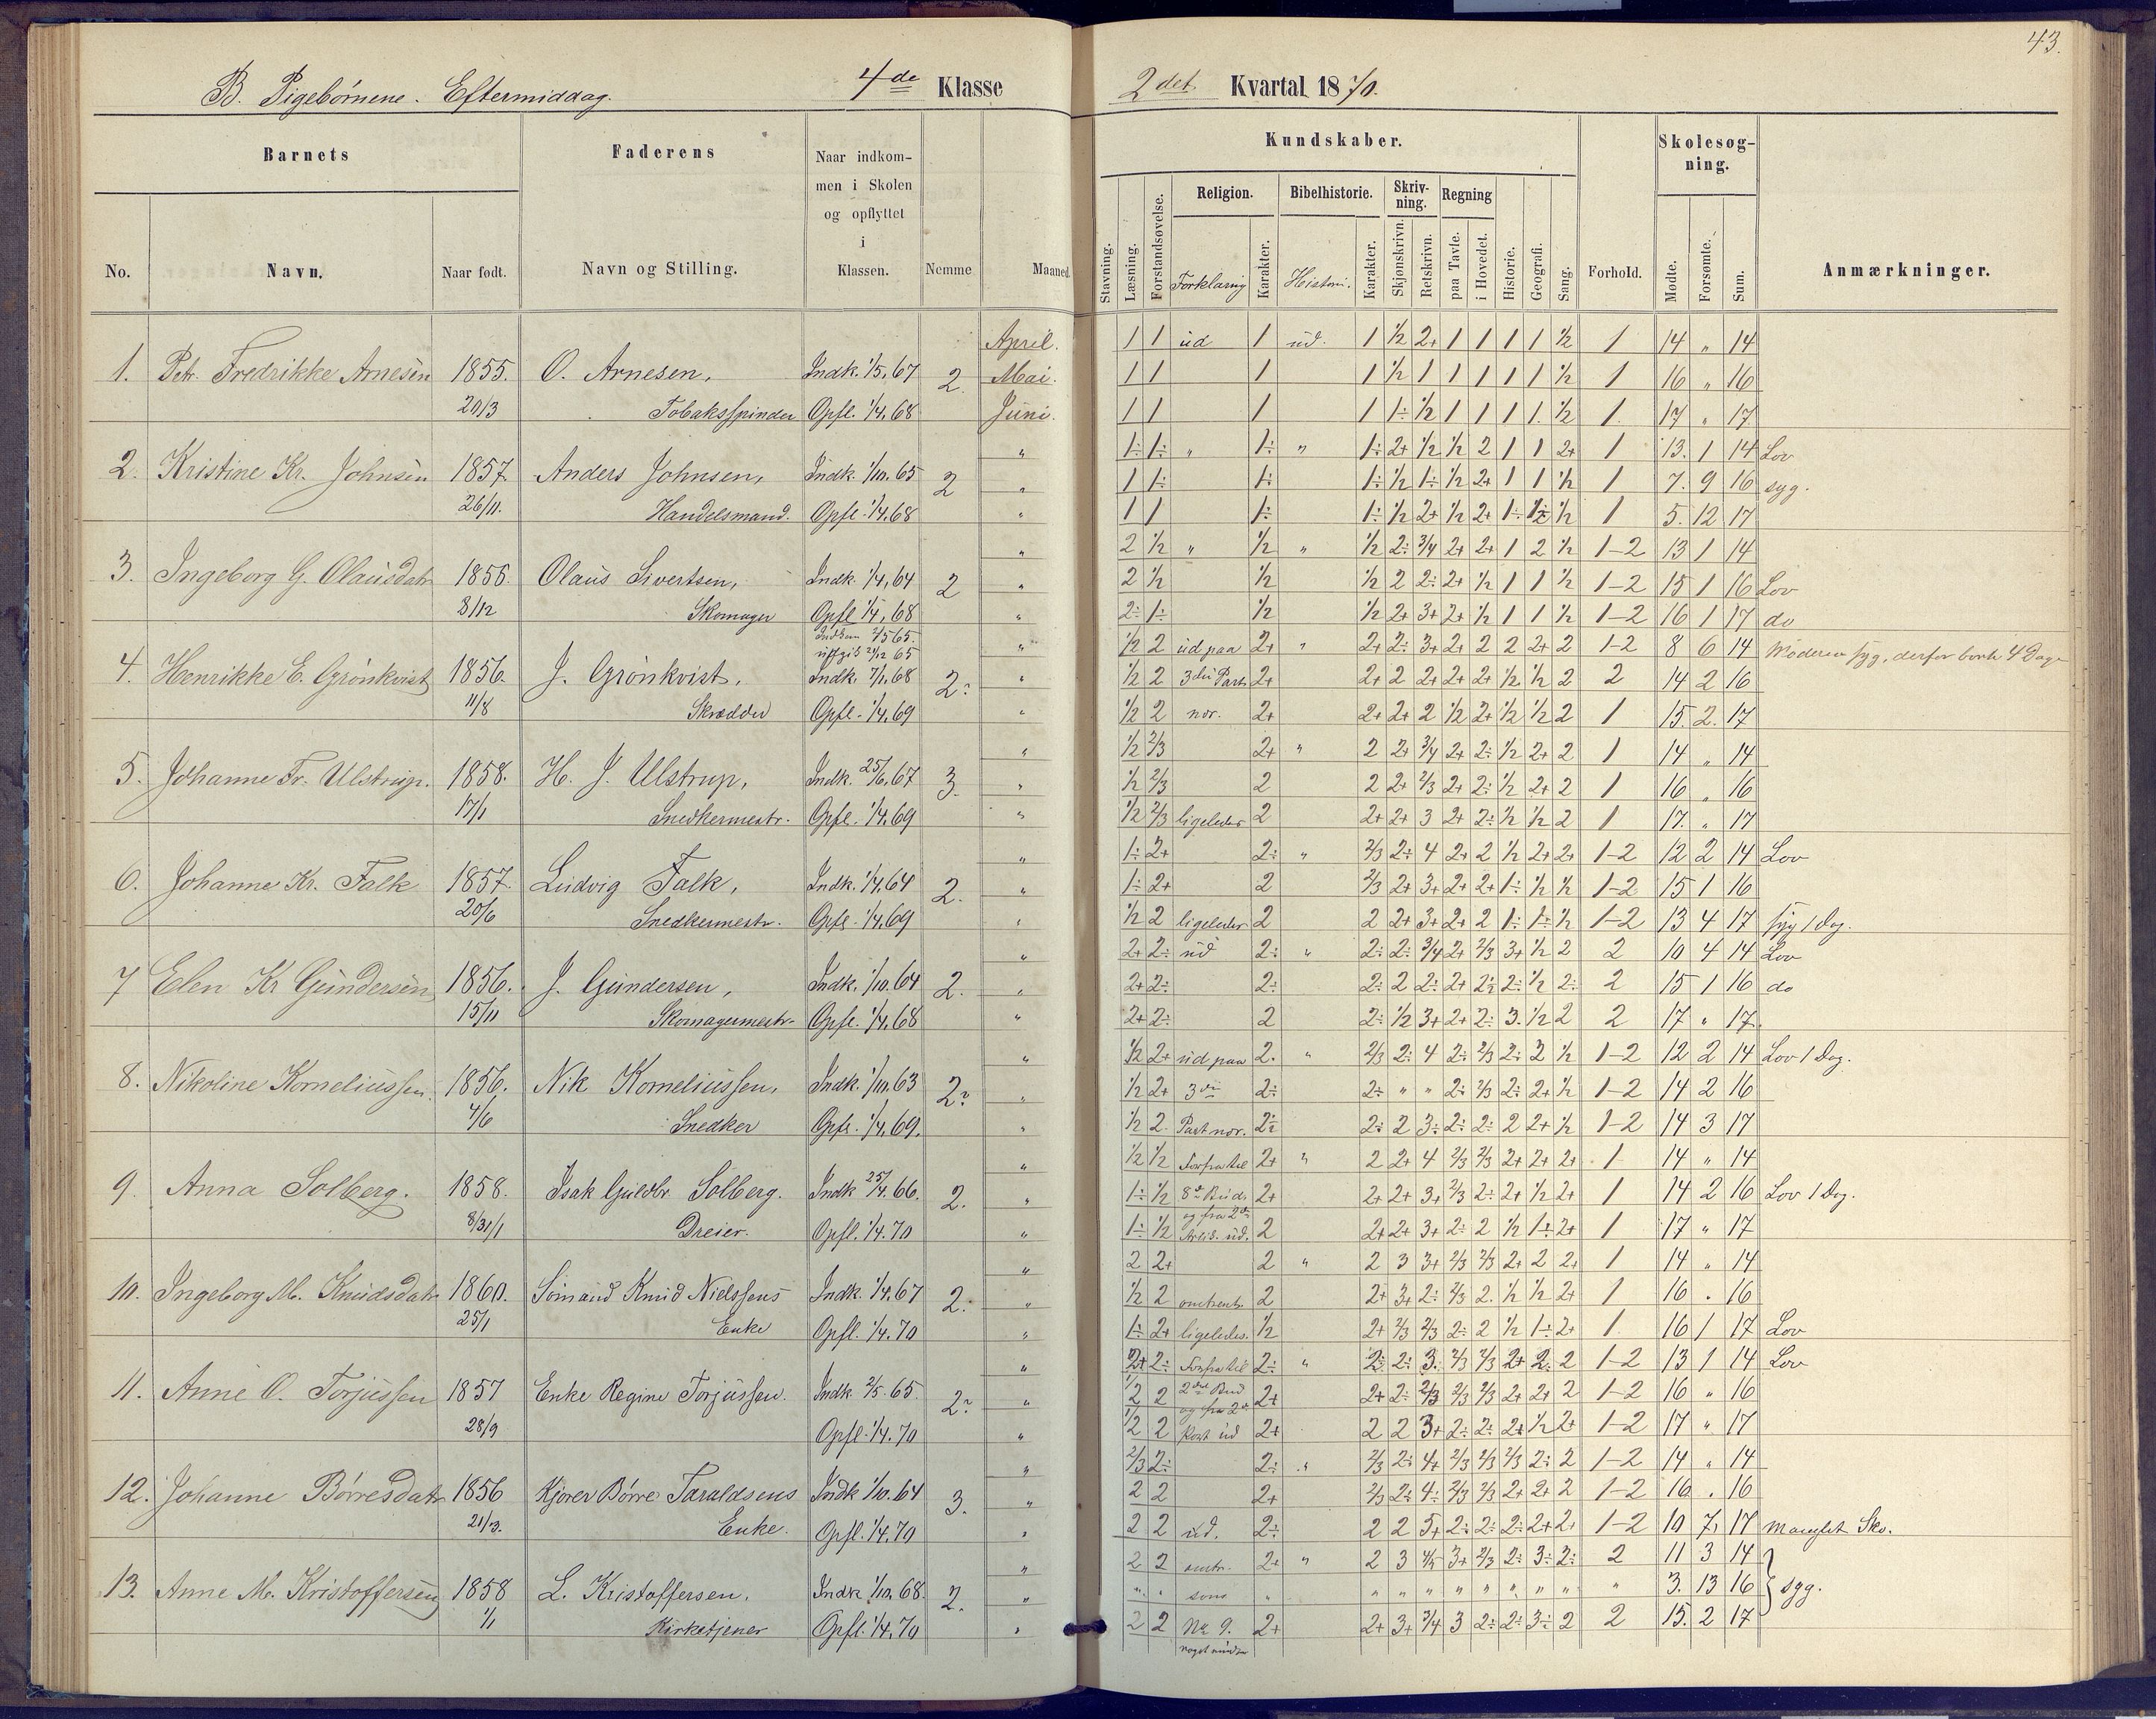 43.
B. Pigebørnene. Eftermiddag. 4de Klasse 2det Kvartal 1870.
Barnets Faderens Naar indkommen i Skolen og opflyttet i Klassen. Nemme Maaned
No. Navn. Naar født. Navn og Stilling.
Kundskaber. Forhold. Skolesøgning. Anmærkninger.
Stavning. Læsning. Forstandsøvelse. Religion. Bibelhistorie. Skrivning. Regning Historie. Geografi. Sang. Mødte. Forsømte. Sum.
Forklaring Karakter. Histori. Karakter. Skjønskrivn. Retskrivn. paa Tavle. i Hovedet.
April. 1 1 ud 1 ud. 1 1/2 2+ 1 1 1 1 1/2 1 14 " 14
1. Petr. Fredrikke Arnesen 1855. O. Arnesen, Indk. 1/5.67 2 Mai. 1 1 1 1 1/2 1 1 1 1 1 1/2 1 16 " 16
20/3 Tobaksspinder Opfl. 1/4.68 Juni. 1 1 1 1 1÷ 1/2 1 1 1 1 1/2 1 17 " 17
" 1÷ 1÷ " 1÷ " 1÷ 2+ 1/2 1/2 2 1 1 2+ 1 13. 1 14 Lov
2. Kristine Kr. Johnsen 1857 Anders Johnsen, Indk. 1/10.65 2 " 1 1÷ 1÷ 1÷ 1/2 1÷ 1/2 2+ 1 1 1/2 1 7. 9 16 syg.
26/11. Handelsmand. Opfl. 1/4.68 " 1 1 1÷ 1÷ 1/2 2+ 1/2 2+ 1÷ 1/2 1/2 1 5. 12 17
" 2 1/2 " 1/2 " 1/2 2÷ 3/4 2+ 2+ 1 2 1/2 1-2 13 1 14
3. Ingeborg G. Olausdatr 1856. Olaus Sivertsen, Indk. 1/4.64 2 " 2 1/2 1/2 1/2 2 2÷ 2+ 1/2 1 1 1/2 1-2 15 1 16 Lov
8/12 Skomager Opfl. 1/4.68 " 2÷ 1÷ 1/2 1/2 2+ 3+ 2+ 1/2 1 1 1/2 1-2 16 1 17 do
Indkom 2/5 65. udgik 21/12 65 " 1/2 2 ud paa 2+ " 2+ 2÷ 3+ 2+ 2 2 2+ 2 1-2 8 6 14 Moderen syg, derfor bort 4 Dage
4. Henrikke E. Grønkvist 1856. J. Grønkvist, Indk. 7/1.68 2? " 1/2 2 3die Part 2+ 2+ 2 2+ 2+ 2+ 1/2 1/2 2 2 14 2 16
11/8 Skrædder Opfl. 1/4.69 " 1/2 2 nær. 2+ 2+ 2+ 2 1/2 2+ 1/2 1/2 2 1 15. 2. 17
" 1/2 2/3 2+ " 2 2+ 3/4 2+ 2÷ 1/2 2+ 2 1 14 " 14
5. Johanne Fr. Ulstrup. 1858. H. J. Ulstrup, Indk. 25/6.67 3. " 1/2 2/3 2 2 2+ 2/3 2+ 2÷ 1/2 2+ 2 1 16 " 16
17/1 Snedkermestr. Opfl. 1/4.69 " 1/2 2/3 ligeledes 2 2+ 2+ 3 2+ 2÷ 1/2 1/2 2 1 17. " 17
" 1÷ 2+ 2÷ " 2/3 2÷ 4 2+ 2 1/2 2+ 2+ 1-2 12 2 14 Lov
6. Johanne Kr. Falk 1857. Ludvig Falk, Indk. 1/4.64 2. " 1÷ 2+ 2 2/3 2+ 3+ 2+ 2+ 1÷ 1/2 1/2 1-2 15 1 16
20/6 Snedkermestr. Opfl. 1/4.69 " 1/2 2 ligeledes 2 2 2+ 3+ 2+ 2 1÷ 1÷ 1/2 1-2 13 4 17 syg 1 Dag.
" 2+ 2÷ ud 2÷ " 2÷ 2÷ 3/4 2+ 2/3 3+ 1/2 2 2 10 4 14 Lov
7 Elen Kr Gundersen 1856. J. Gundersen, Indk. 1/10.64 2. " 2+ 2÷ 2÷ 2÷ 2 2÷ 2+ 2÷ 2÷ 1/2 2÷ 2 15 1 16 do
15/11 Skomagermestr. Opfl. 1/4.68 " 2+ 2÷ 2 2÷ 1/2 3+ 2+ 2÷ 3. 1/2 2 2 17 " 17.
" 1/2 2+ ud paa 2. " 2/3 2÷ 4 2÷ 2/3 2÷ 2 1/2 1-2 12 2 14 Lov 1 Dag.
8. Nikoline Korneliussen. 1856. Nik Korneliussen, Indk. 1/10.63 2? " 1/2 2+ 3die 2÷ 2÷ " " 2÷ 2/3 2÷ 2+ 1/2 1-2 14 2 16
4/6 Snedker Opfl. 1/4.69. " 1/2 2. Part nær. 2÷ 2÷ 2 3÷ 2÷ 2÷ 2 2+ 1/2 1-2 14 3 17
" 1/2 1/2 Forfra til 2+ " 2 2+ 4 2/3 2/3 2+ 2+ 2+ 1 14 " 14
9. Anna Solberg. 1858. Isak Guldbr Solberg. Indk 25/4.66. 2. " 1÷ 1/2 8de Bud. 2+ 2+ 2+ 3+ 2/3 2÷ 2+ 1/2 2+ 1 14 2 16 Lov 1 Dag.
8/31/1 Dreier. Opfl. 1/4.70 " 1÷ 1/2 og fra 2den Artik. ud. 2 2+ 2+ 3+ 2÷ 2 1/2 1÷ 2+ 1 17 " 17
" 2 2+ 2 " 2 3 3+ 2/3 2/3 2+ 2 2+ 1 14 " 14
10. Ingeborg M. Knudsdatr 1860. Sømand Knud Nielssens Indk. 1/4.67 2. " 1/2 2 omtrent 2 2+ 3+ 2÷ 2/3 2. 1/2 1/2 2+ 1 16 " 16
25/1 Enke Opfl. 1/4.70 " 1÷ 2+ ligeledes. 1/2 2+ 2/3 2/3 2÷ 2 1/2 1÷ 2+ 1 16 1 17 Lov
" 2+ 2÷ Forfra til 2÷ " 2÷ 2÷ 3. 2/3 2/3 2+ 2. 2 1-2 13 1 14 Lov
11. Anne O. Torjussen 1857 Enke Regine Torjussen. Indk 2/5.65. 2? " 1/2 2 2det Bud 2+ 2+ 2÷ 2/3 2/3 2/3 2+ 2+ 2 1-2 16 " 16
28/9 Opfl. 1/4.70 " 1/2 2 og fra 2den Part ud 2+ 2 2 3+ 2÷ 2÷ 2+ 1/2 2+ 1-2 17 " 17
" 2/3 2÷ 2÷ " 2/3 2÷ 4+ 2/3 2/3 2/3 2÷ 2 1-2 14 " 14
12. Johanne Børresdatr 1856 Kjører Børre Taraldsens Indk 1/10.64 3. " 2 2 2+ 2/3 2÷ 4÷ 2/3 2/3 2+ 2+ 2 1-2 16 " 16
21/3. Enke. Opfl. 1/4.70 " 2 2 ud. 2÷ 2 2 5+ 2÷ 2÷ 2÷ 2+ 2+ 1-2 10 7, 17 manglet Sko.
" 2 2 omtr. 2+ " 2 3 4/5 3+ 2/3 2÷ 3÷ 2÷ 2 11 3 14
13. Anne M. Kristoffersen 1858 L. Kristoffersen, Indk 1/10.68. 2. " " " som " " " " " " " " " " 3. 13 16 } syg.
1/1 Kirketjener Opfl. 1/4.70 " 2 2 No 9. 2+ 2+ 3+ 3/4 3 2÷ 2÷ 3÷ 2 2 15. 2 17
noget mindre